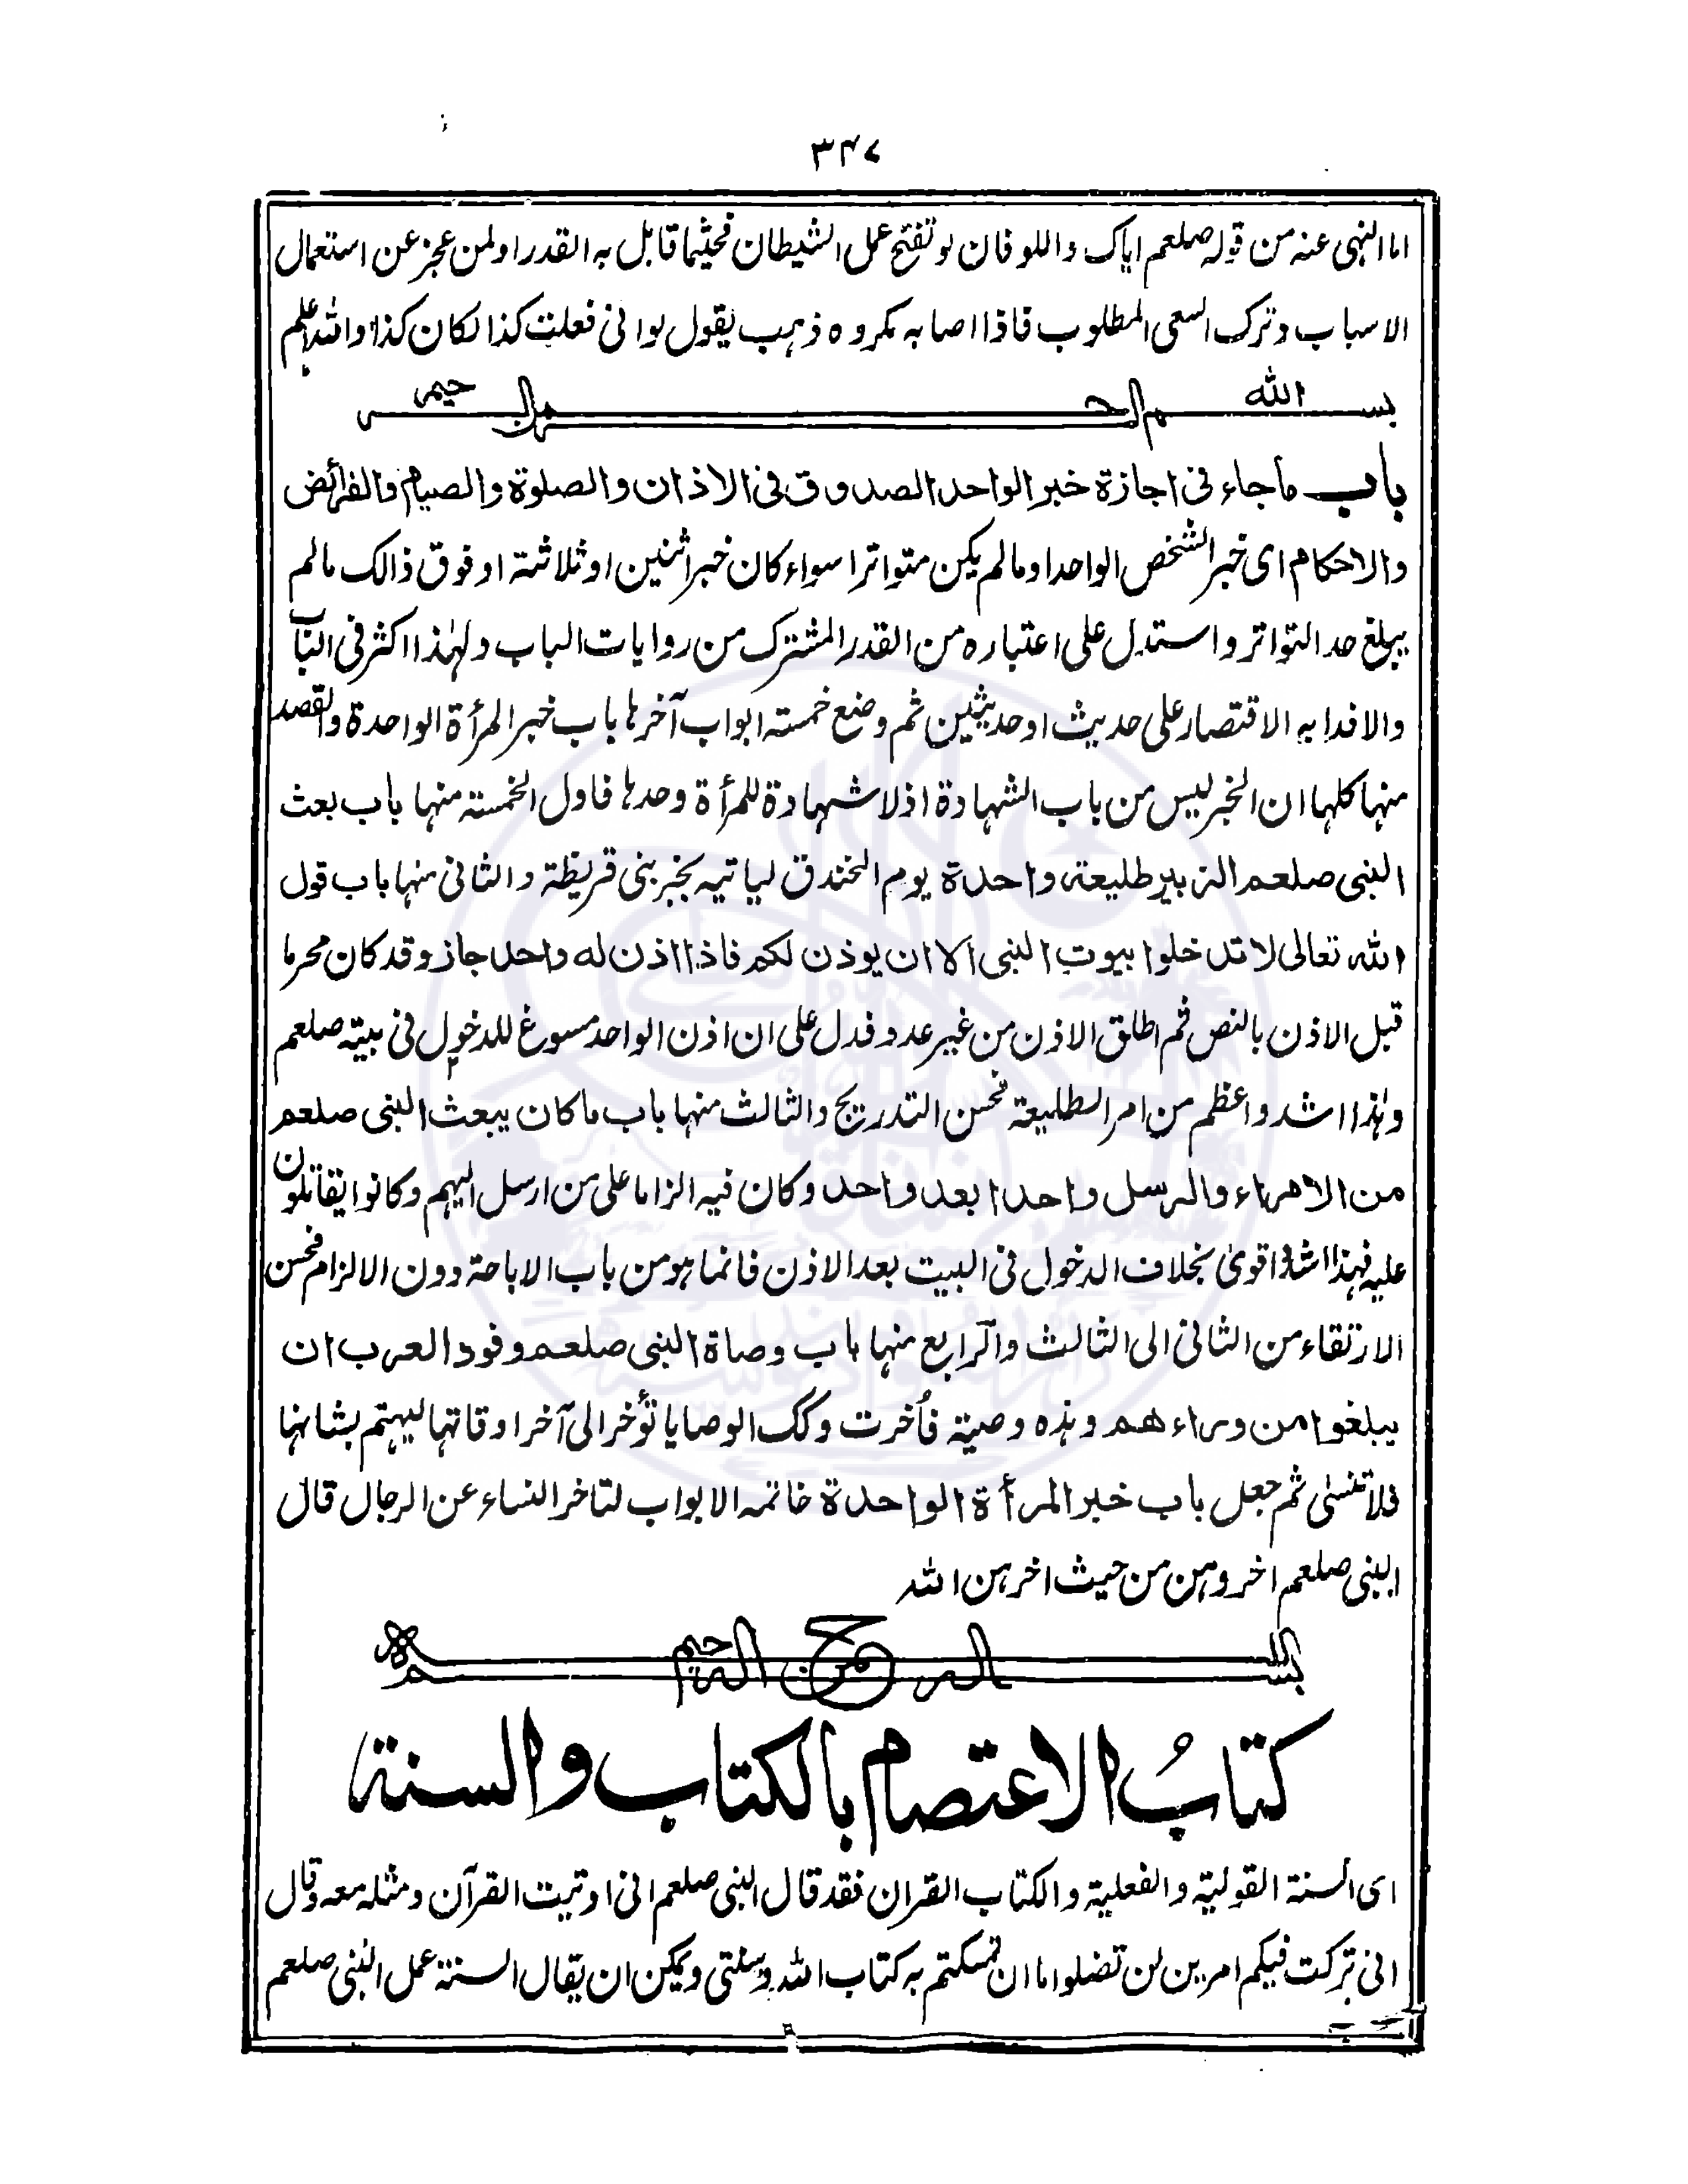 ۳۴۷
اما النهى عنه من قوله صلعم اياك واللو فان لو تفتح عمل الشيطان فحيثما قابل به القدر او لمن عجز عن استعمال
الاسباب وترك السعى المطلوب فاذا اصابه مكروه ذهب يقول لو انى فعلت كذا لكان كذا والله اعلم
بسم الله الرحمن الرحيم
باب ما جاء فى اجازة خبر الواحد الصدوق فى الاذان والصلوة والصيام والفرائض
والاحكام اى خبر الشخص الواحد او ما لم يكن متواترا سواء كان خبر اثنين او ثلاثة او فوق ذالك ما لم
يبلغ حد التواتر واستدل على اعتباره من القدر المشترك من روايات الباب ولهذا اكثر فى الباب
والافدا به الاقتصار على حديث او حديثين ثم وضع خمسة ابواب آخرها باب خبر المرأة الواحدة والقصد
منها كلها ان الخبر ليس من باب الشهادة اذ لا شهادة للمرأة وحدها فاول الخمسة منها باب بعث
النبى صلعم الزبير طليعة واحدة يوم الخندق لياتيه بخبر بنى قريظة والثانى منها باب قول
الله تعالى لا تدخلوا بيوت النبى الا ان يوذن لكم فاذا اذن له واحد جاز وقد كان محرما
قبل الاذن بالنص ثم اطلق الاذن من غير عدد فدل على ان اذن الواحد مسوغ للدخول فى بيته صلعم
وهذا اشد واعظم من امر الطليعة فحسن التدريج والثالث منها باب ما كان يبعث النبى صلعم
من الامراء والرسل واحدا بعد واحد وكان فيه الزاما على من ارسل اليهم وكانوا يقاتلون
عليه فهذا اشد واقوى بخلاف الدخول فى البيت بعد الاذن فانما هو من باب الاباحة دون الالزام فحسن
الارتقاء من الثانى الى الثالث والرابع منها باب وصاة النبى صلعم وفود العرب ان
يبلغوا من وراءهم وهذه وصية فأخرت وكك الوصايا تؤخر الى آخر اوقاتها ليهتم بشانها
فلا تنسى ثم جعل باب خبر المرأة الواحدة خاتمه الابواب لتاخر النساء عن الرجال قال
النبى صلعم اخروهن من حيث اخرهن الله
بسم الله الرحمن الرحيم
كتابُ الاعتصام بالكتاب والسنة
اى السنة القولية والفعلية والكتاب القران فقد قال النبى صلعم انى اوتيت القرآن ومثله معه وقال
انى تركت فيكم امرين لن تضلوا ما ان تمسكتم به كتاب الله وسنتى ويمكن ان يقال السنة عمل النبى صلعم